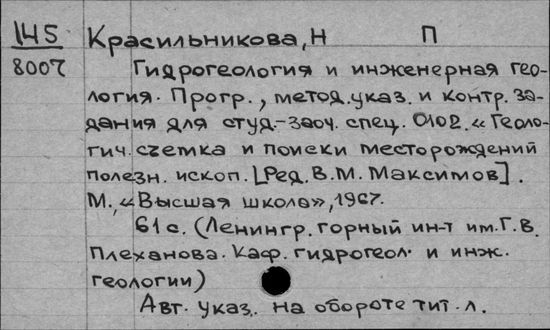 145 Красильникова, Н П
8007 Гидрогеология и инженерная гео-
логия. Прогр., метод. указ. и контр. за-
дания для студ.-заоч. спец. 0102. «Геоло-
гич. съемка и поиски месторождений
полезн. ископ. [Ред. В. М. Максимов].
М., «Высшая школа», 1967.
61 с. (Ленингр. горный ин-т им. Г. В.
Плеханова. Каф. гидрогеол. и инж.
геологии)
Авт. указ. на обороте тит. л.